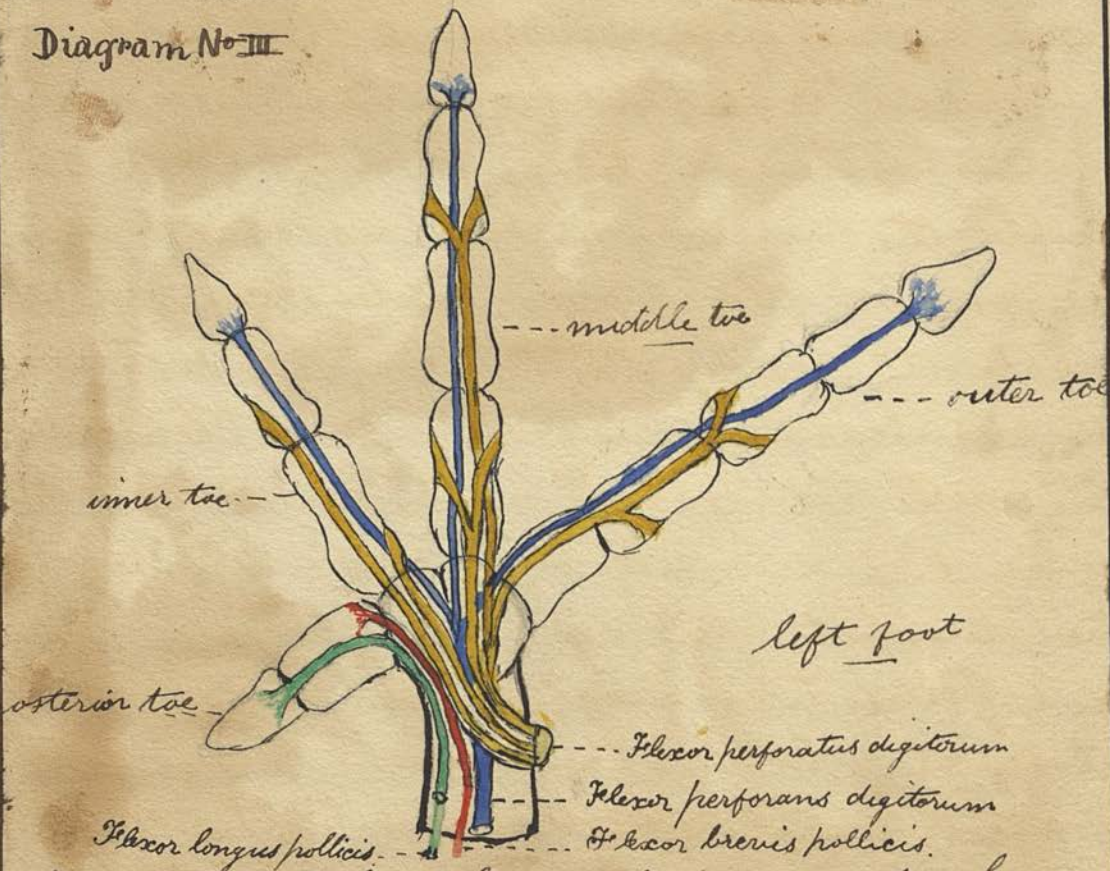 Diagram No III
middle toe
outer toe
inner toe
left foot
osterior toe
Flexor perforatus digitorum
Flexor perforans digitorum
Flexor longus pollicis
Flexor brevis pollicis.